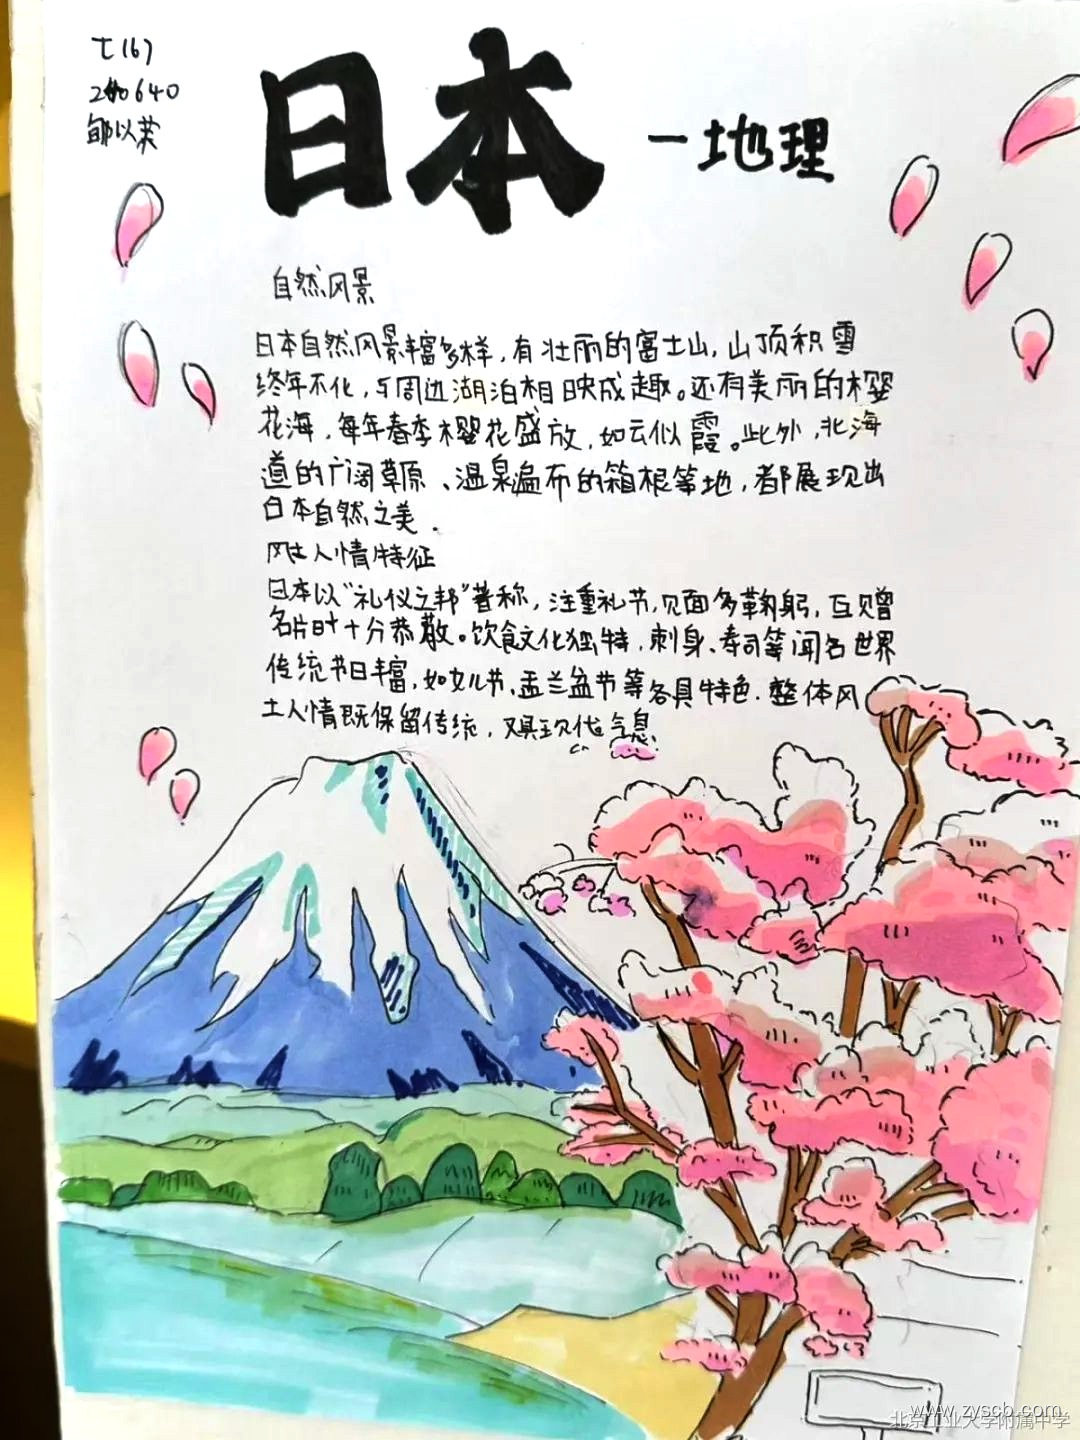 七(6)
240640
邹以荣
日本
一地理
自然风景
日本自然风景丰富多样，有壮丽的富士山，山顶积雪
终年不化，与周边湖泊相映成趣。还有美丽的樱
花海，每年春季樱花盛放，如云似霞。此外，北海
道的广阔草原、温泉遍布的箱根等地，都展现出
日本自然之美．
风土人情特征
日本以“礼仪之邦”著称，注重礼节，见面多鞠躬，互赠
名片时十分恭敬。饮食文化独特，刺身、寿司等闻名世界
传统节日丰富，如女儿节、盂兰盆节等各具特色．整体风
土人情既保留传统，又具现代气息
www.zyscb.com
北京工业大学附属中学